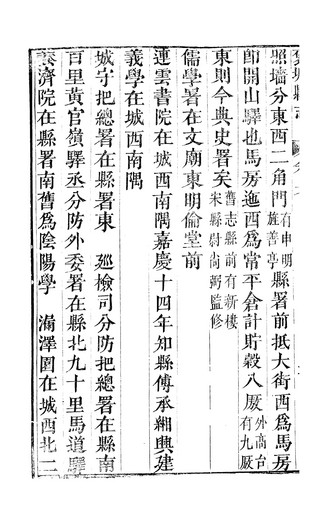 照墻分東西二角門有申明旌善亭縣署前抵大街西爲馬房
卽開山驛也馬房迤西爲常平倉計貯穀八厫外高台有九厫
東則今典史署矣舊志縣前有新樓宋縣尉尚弼監修
儒學署在文廟東明倫堂前
連雲書院在城西南隅嘉慶十四年知縣傅承緗興建
義學在城西南隅
城守把總署在縣署東 廵檢司分防把總署在縣南
百里黃官嶺驛丞分防外委署在縣北九十里馬道驛
養濟院在縣署南舊爲陰陽學 漏澤園在城西北二